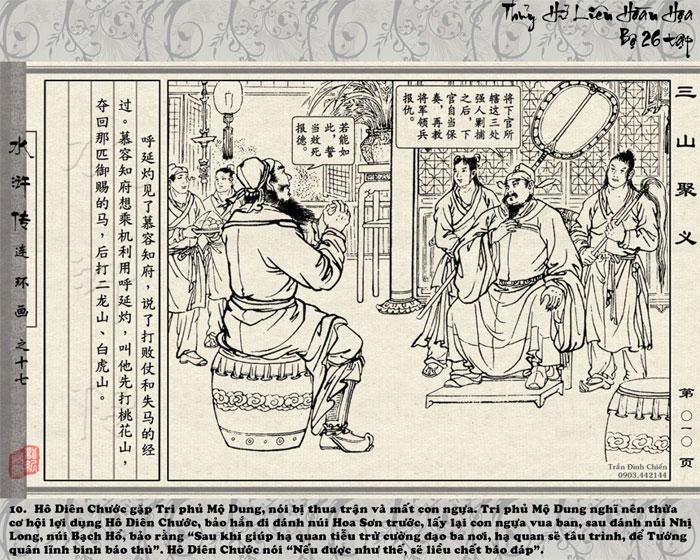 Thủy Hử Liên Hoàn Họa
Bộ 26 tập
三山聚义
第〇一〇页
将下官所
辖这三处
强人剿捕
之后，下
官自当保
奏，再教
将军领兵
报仇。
若能如
此，誓
当效死
报德。
呼延灼见了慕容知府，说了打败仗和失马的经
过。慕容知府想乘机利用呼延灼，叫他先打桃花山，
夺回那匹御赐的马，后打二龙山、白虎山。
水浒传连环画之十七
Trần Đình Chiến
0903.442144
10. Hô Diên Chước gặp Tri phủ Mộ Dung, nói bị thua trận và mất con ngựa. Tri phủ Mộ Dung nghĩ nên thừa
cơ hội lợi dụng Hô Diên Chước, bảo hắn đi đánh núi Hoa Sơn trước, lấy lại con ngựa vua ban, sau đánh núi Nhị
Long, núi Bạch Hổ, bảo rằng “Sau khi giúp hạ quan tiễu trừ cường đạo ba nơi, hạ quan sẽ tâu trình, để Tướng
quân lĩnh binh báo thù”. Hô Diên Chước nói “Nếu được như thế, sẽ liều chết báo đáp”.